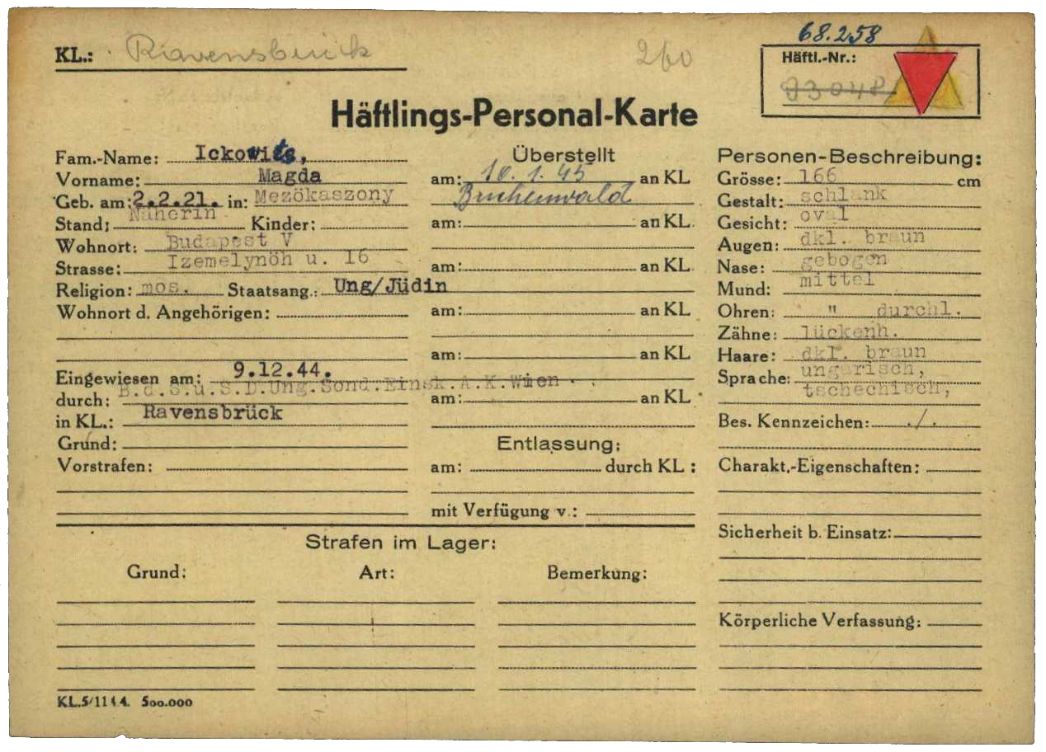 KL.: Ravensbrück
260
68.258
Häftl.-Nr.:
93048
Häftlings-Personal-Karte
Fam.-Name: Ickowits,
Vorname: Magda
Geb. am: 2.2.21. in: Mezökaszony
Stand: Näherin Kinder:
Wohnort: Budapest V
Strasse: Izemelynöh u. I6
Religion: mos. Staatsang.: Ung/Jüdin
Wohnort d. Angehörigen:
Eingewiesen am: 9.12.44.
durch: B.d.S.u.S.D.Ung.Sond.Einsk.A.K.Wien
in KL.: Ravensbrück
Grund:
Vorstrafen:
Überstellt
am: 10.1.45 an KL
Buchenwald
am: an KL.
am: an KL
am: an KL
am: an KL
am: an KL
Entlassung:
am: durch KL:
mit Verfügung v.:
Personen-Beschreibung:
Grösse: 166 cm
Gestalt: schlank
Gesicht: oval
Augen: dkl. braun
Nase: gebogen
Mund: mittel
Ohren: " durchl.
Zähne: lückenh.
Haare: dkl. braun
Sprache: ungarisch,
tschechisch,
Bes. Kennzeichen: ./.
Charakt.-Eigenschaften:
Sicherheit b. Einsatz:
Körperliche Verfassung:
Strafen im Lager:
Grund: Art: Bemerkung:
KL.5/1144. 500.000